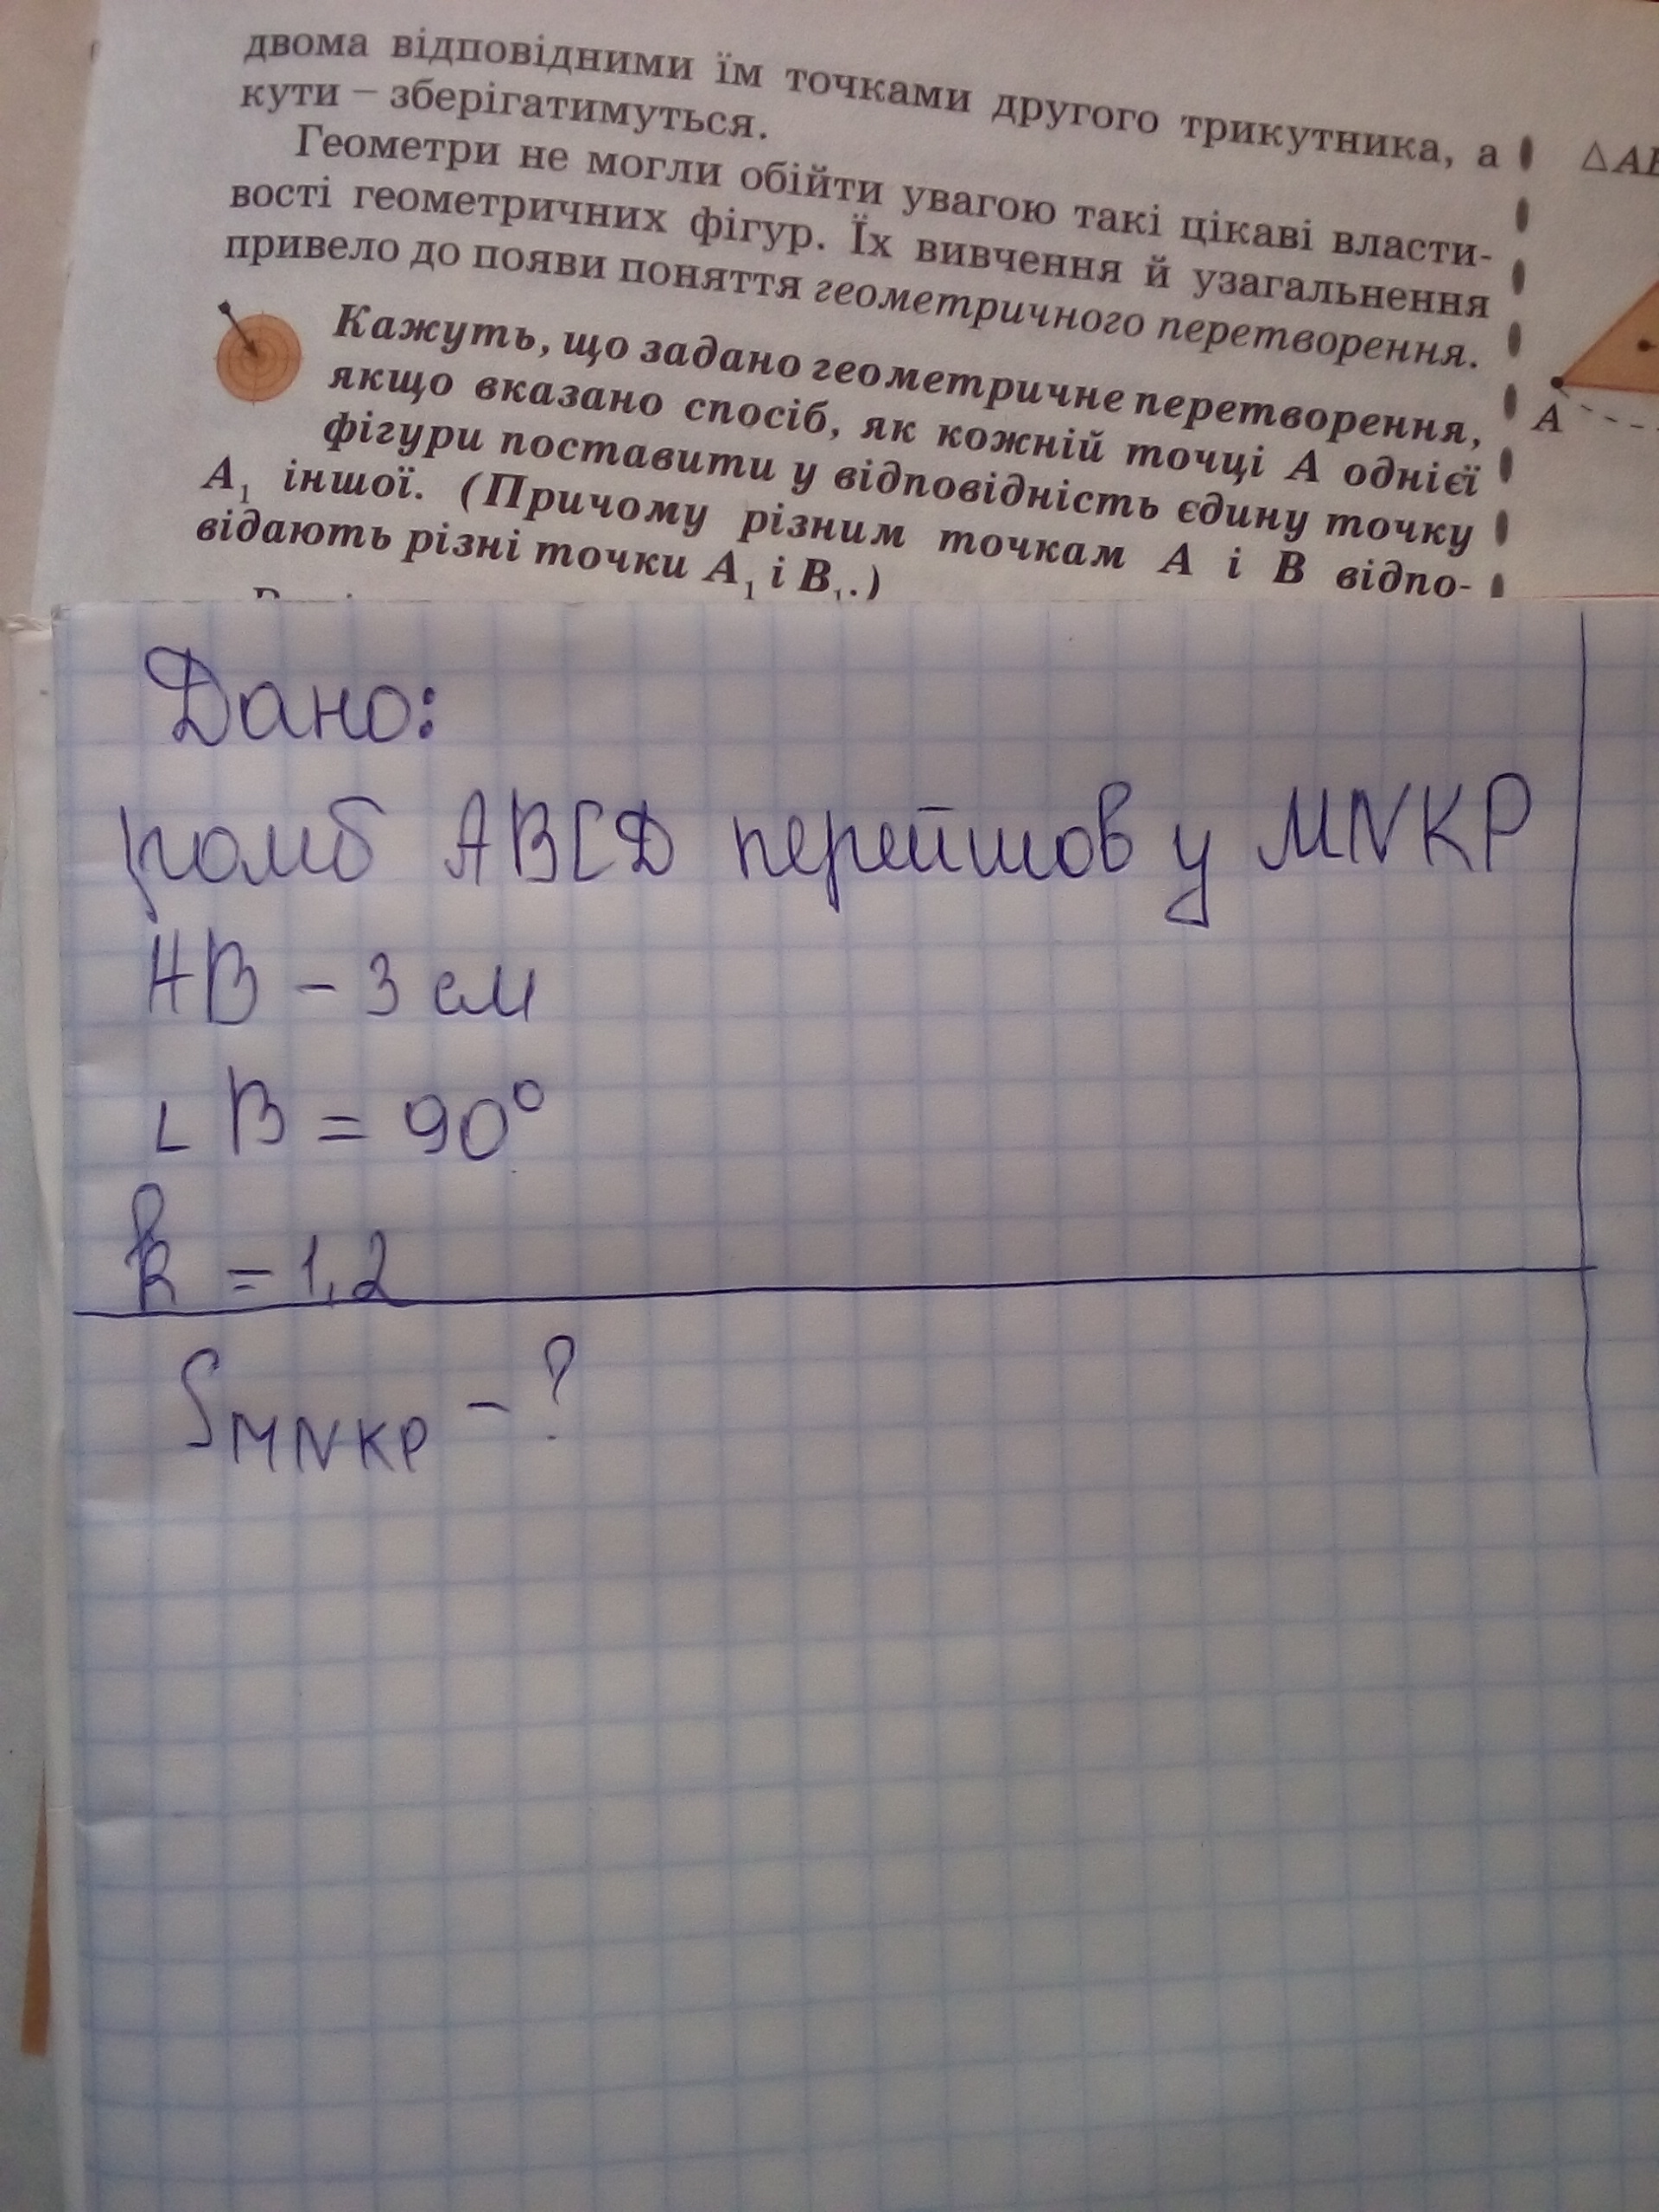 двома відповідними їм точками другого трикутника, а
кути – зберігатимуться.
Геометри не могли обійти увагою такі цікаві власти-
вості геометричних фігур. Їх вивчення й узагальнення
привело до появи поняття геометричного перетворення.
Кажуть, що задано геометричне перетворення,
якщо вказано спосіб, як кожній точці А однієї
фігури поставити у відповідність єдину точку
А₁ іншої. (Причому різним точкам А і В відпо-
відають різні точки А₁ і В₁.)
△AB
A
Дано:
ромб ABCD перейшов у MNKP
AB – 3 см
∟B = 90°
k = 1,2
S MNKP – ?